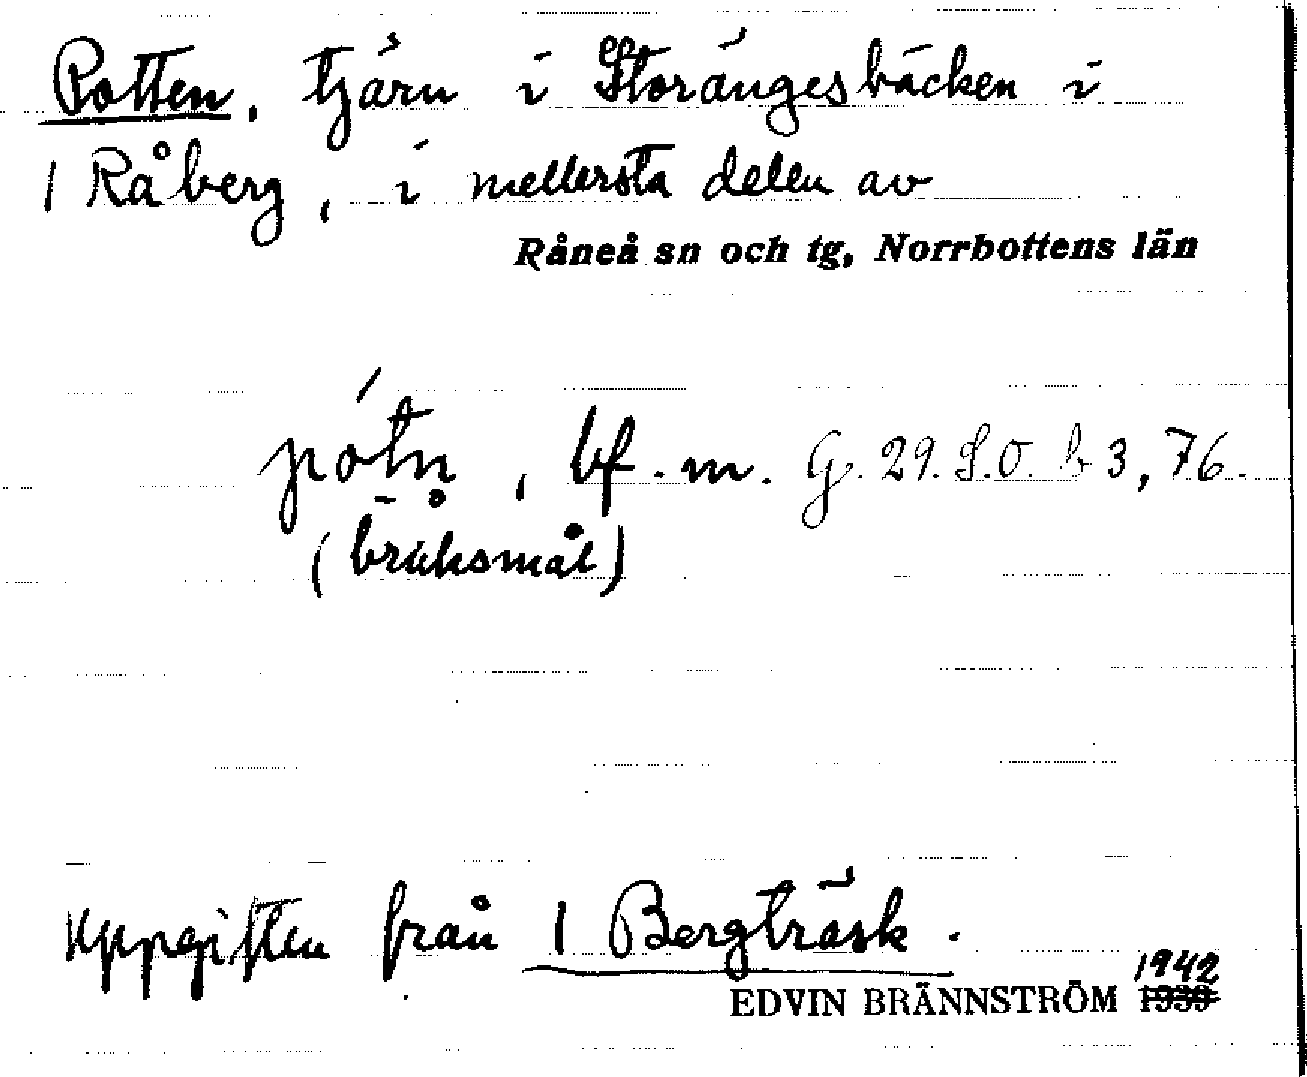 Potten, tjärn i Storängesbäcken i
1 Råberg, i mellersta delen av
Råneå sn och tg, Norrbottens län
pótn̥, bf. m. G. 29. S.O. b 3, 76.
(bråksmål)
Uppgiften från 1 Bergträsk.
1942
EDVIN BRÄNNSTRÖM 1939